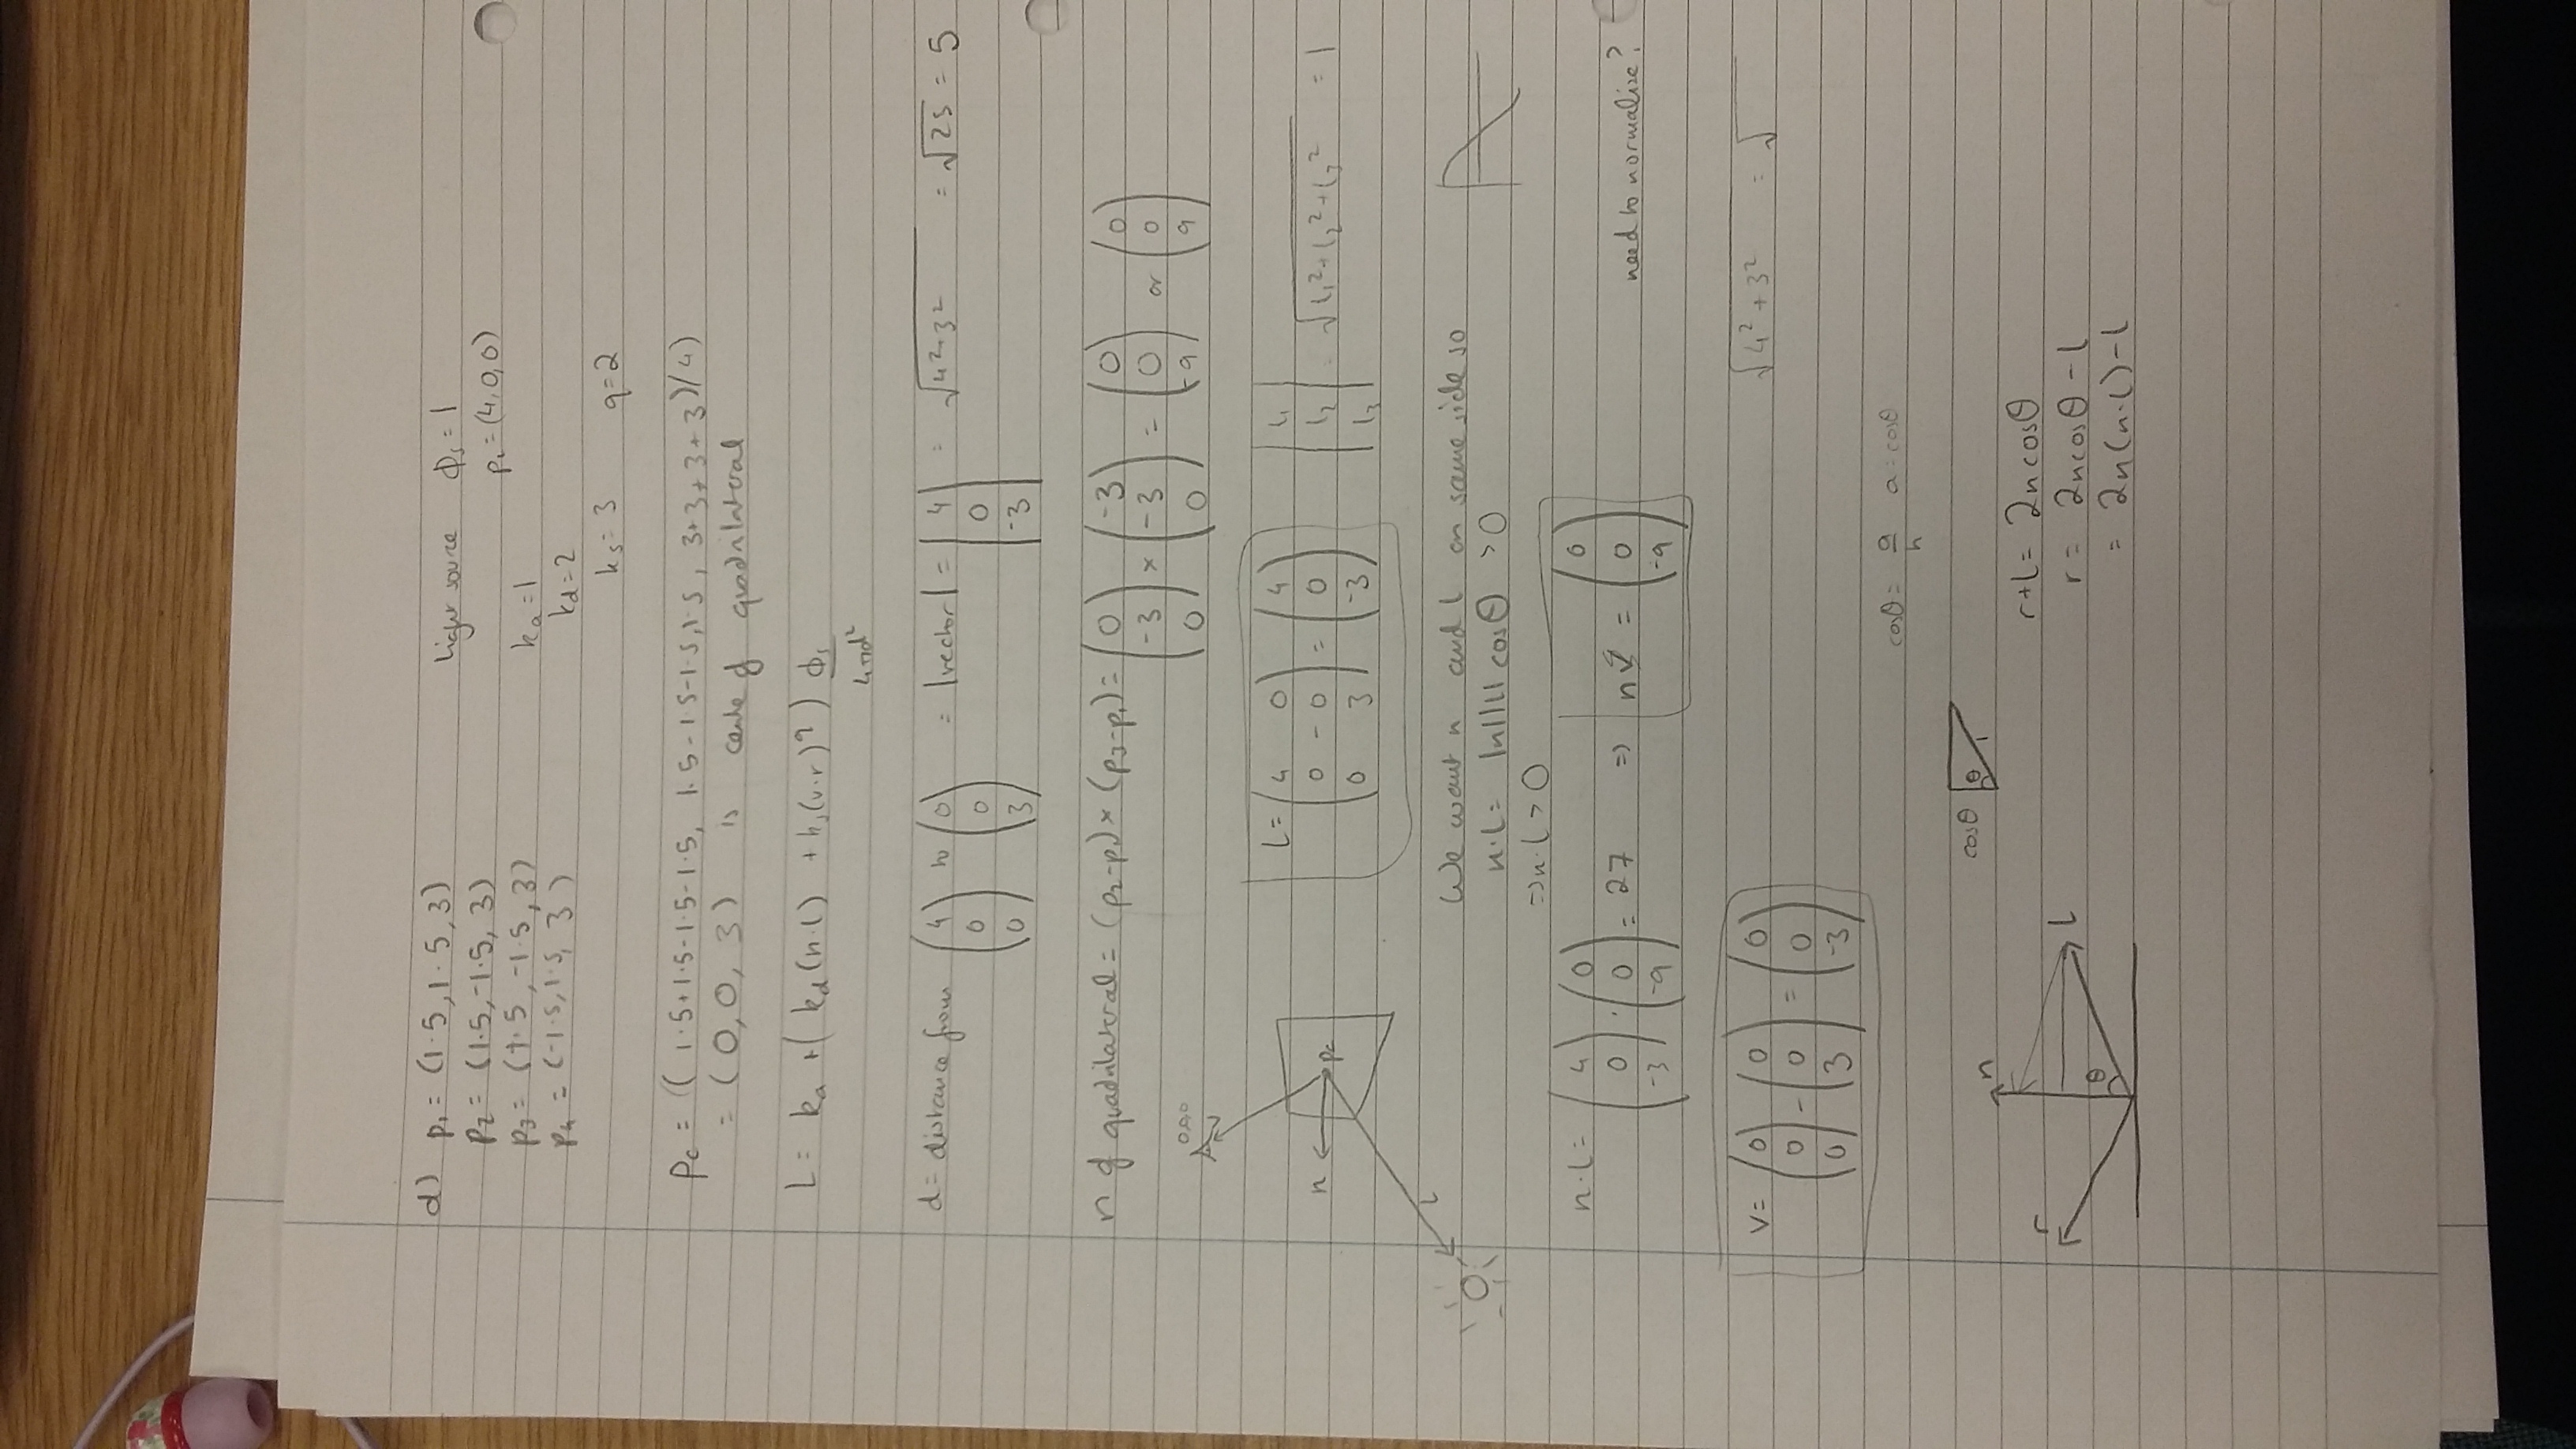 d) p₁ = (1.5, 1.5, 3) Light source Φₛ = 1
p₂ = (1.5, -1.5, 3) p_L = (4, 0, 0)
p₃ = (-1.5, -1.5, 3) kₐ = 1
p₄ = (-1.5, 1.5, 3) k_d = 2
kₛ = 3 q = 2
p_c = ((1.5+1.5-1.5-1.5, 1.5-1.5-1.5,1.5, 3+3+3+3)/4)
= (0, 0, 3) is centre of quadrilateral
L = kₐ + (k_d(n·l) + kₛ(v·r)^q) Φₛ
4πd²
d = distance from (4 0 0) to (0 0 3) = |vector| = |4 0 -3| = √4²+3² = √25 = 5
n of quadrilateral = (p₂-p₁) × (p₃-p₁) = (0 -3 0) × (-3 -3 0) = (0 0 -9) or (0 0 9)
0,0,0
n p_c
L = (4 0 0 - 0 0 3) = (4 0 -3) |l₁ l₂ l₃| = √l₁²+l₂²+l₃² = 1
l
We want n and l on same side so
n·l = |n||l| cosθ > 0
⇒ n·l > 0
n·l = (4 0 -3) · (0 0 -9) = 27 ⇒ n = (0 0 -9) need to normalize?
v = (0 0 0) - (0 0 3) = (0 0 -3) √4²+3² = √
cosθ = a/h a = cosθ
cosθ θ 1
n
r θ l
r+l = 2ncosθ
r = 2ncosθ - l
= 2n(n·l) - l